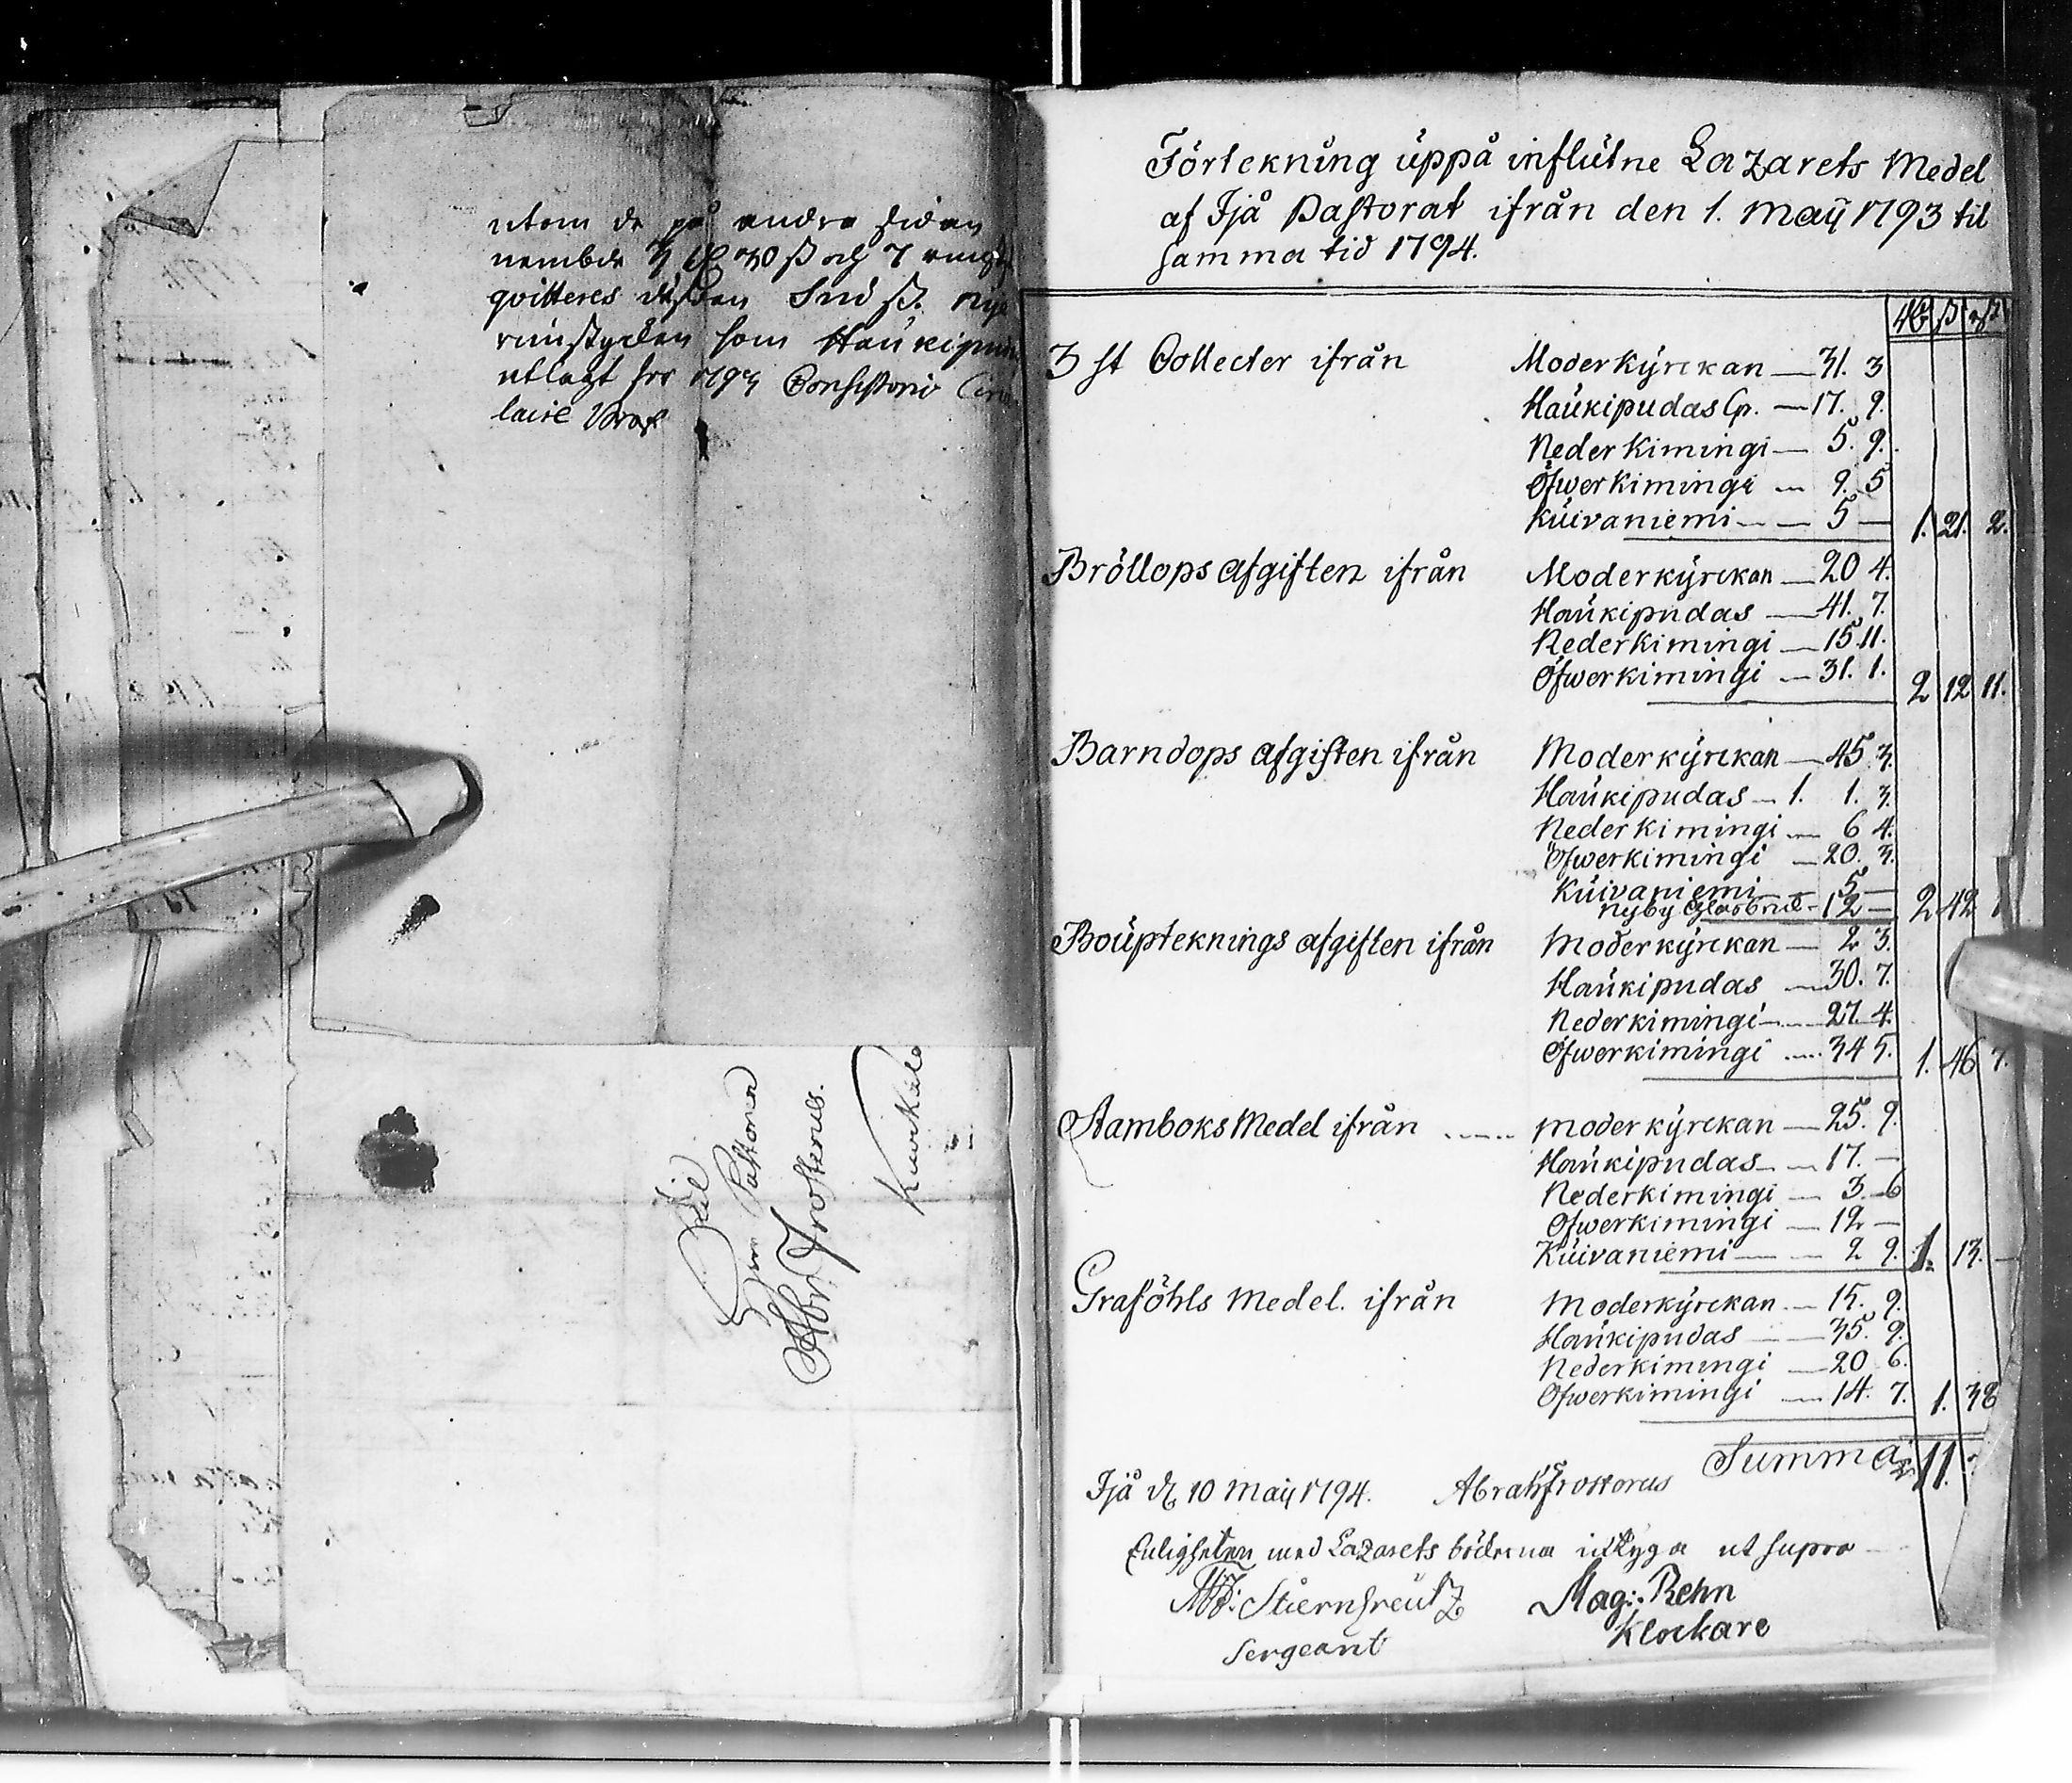 utom de på andra sidan
qvitteres
som Haukipu
utlagt för 1793 Consistorii
Til
Abr: Frosterus.
Förtekning uppå influtne Lazarets Medel
af Ijå Pastorat ifrån den 1. Maÿ 1793 til
samma tid 1794.
3 st Collecter ifrån Moderkÿrckan — 31. 3
Haukipudas Cp. — 17. 9.
Nederkimingi — 5. 9.
Öfwerkimingi — 9. 5
Kuivaniemi — 5 — 1. 21. 2.
Bröllops afgiften ifrån Moderkÿrckan — 20 4.
Haukipudas — 41. 7.
Nederkimingi — 15. 11.
Öfwerkimingi — 31. 1. 2 12 11.
Barndops afgiften ifrån Moderkÿrckan — 45. 3.
Haukipudas — 1. 1. 3.
Nederkimingi — 6 4.
Öfwerkimingi — 20. 3.
Kuivaniemi — 5 —
Nyby Glasbruk — 12 — 2 42 1
Boupteknings afgiften ifrån Moderkÿrckan — 2 3.
Haukipudas — 30. 7.
Nederkimingi — 27. 4.
Öfwerkimingi — 34 5. 1. 46 7.
Stamboks Medel ifrån Moderkÿrckan — 25. 9.
Haukipudas — 17. —
Nederkimingi — 3. 6
Öfwerkimingi — 12 —
Kuivaniemi — 2 9. 1. 13. —
Graföhls Medel. ifrån Moderkÿrckan — 15. 9.
Haukipudas — 35. 9.
Nederkimingi — 20 6.
Öfwerkimingi — 14. 7. 1. 38
Summa 11.
Ijå d. 10 Maÿ 1794. Abrah Frosterus
Enligheten med Lazarets böckerna intyga ut supra
Stiernkreutz Mag: Rehn
Sergeant Klockare